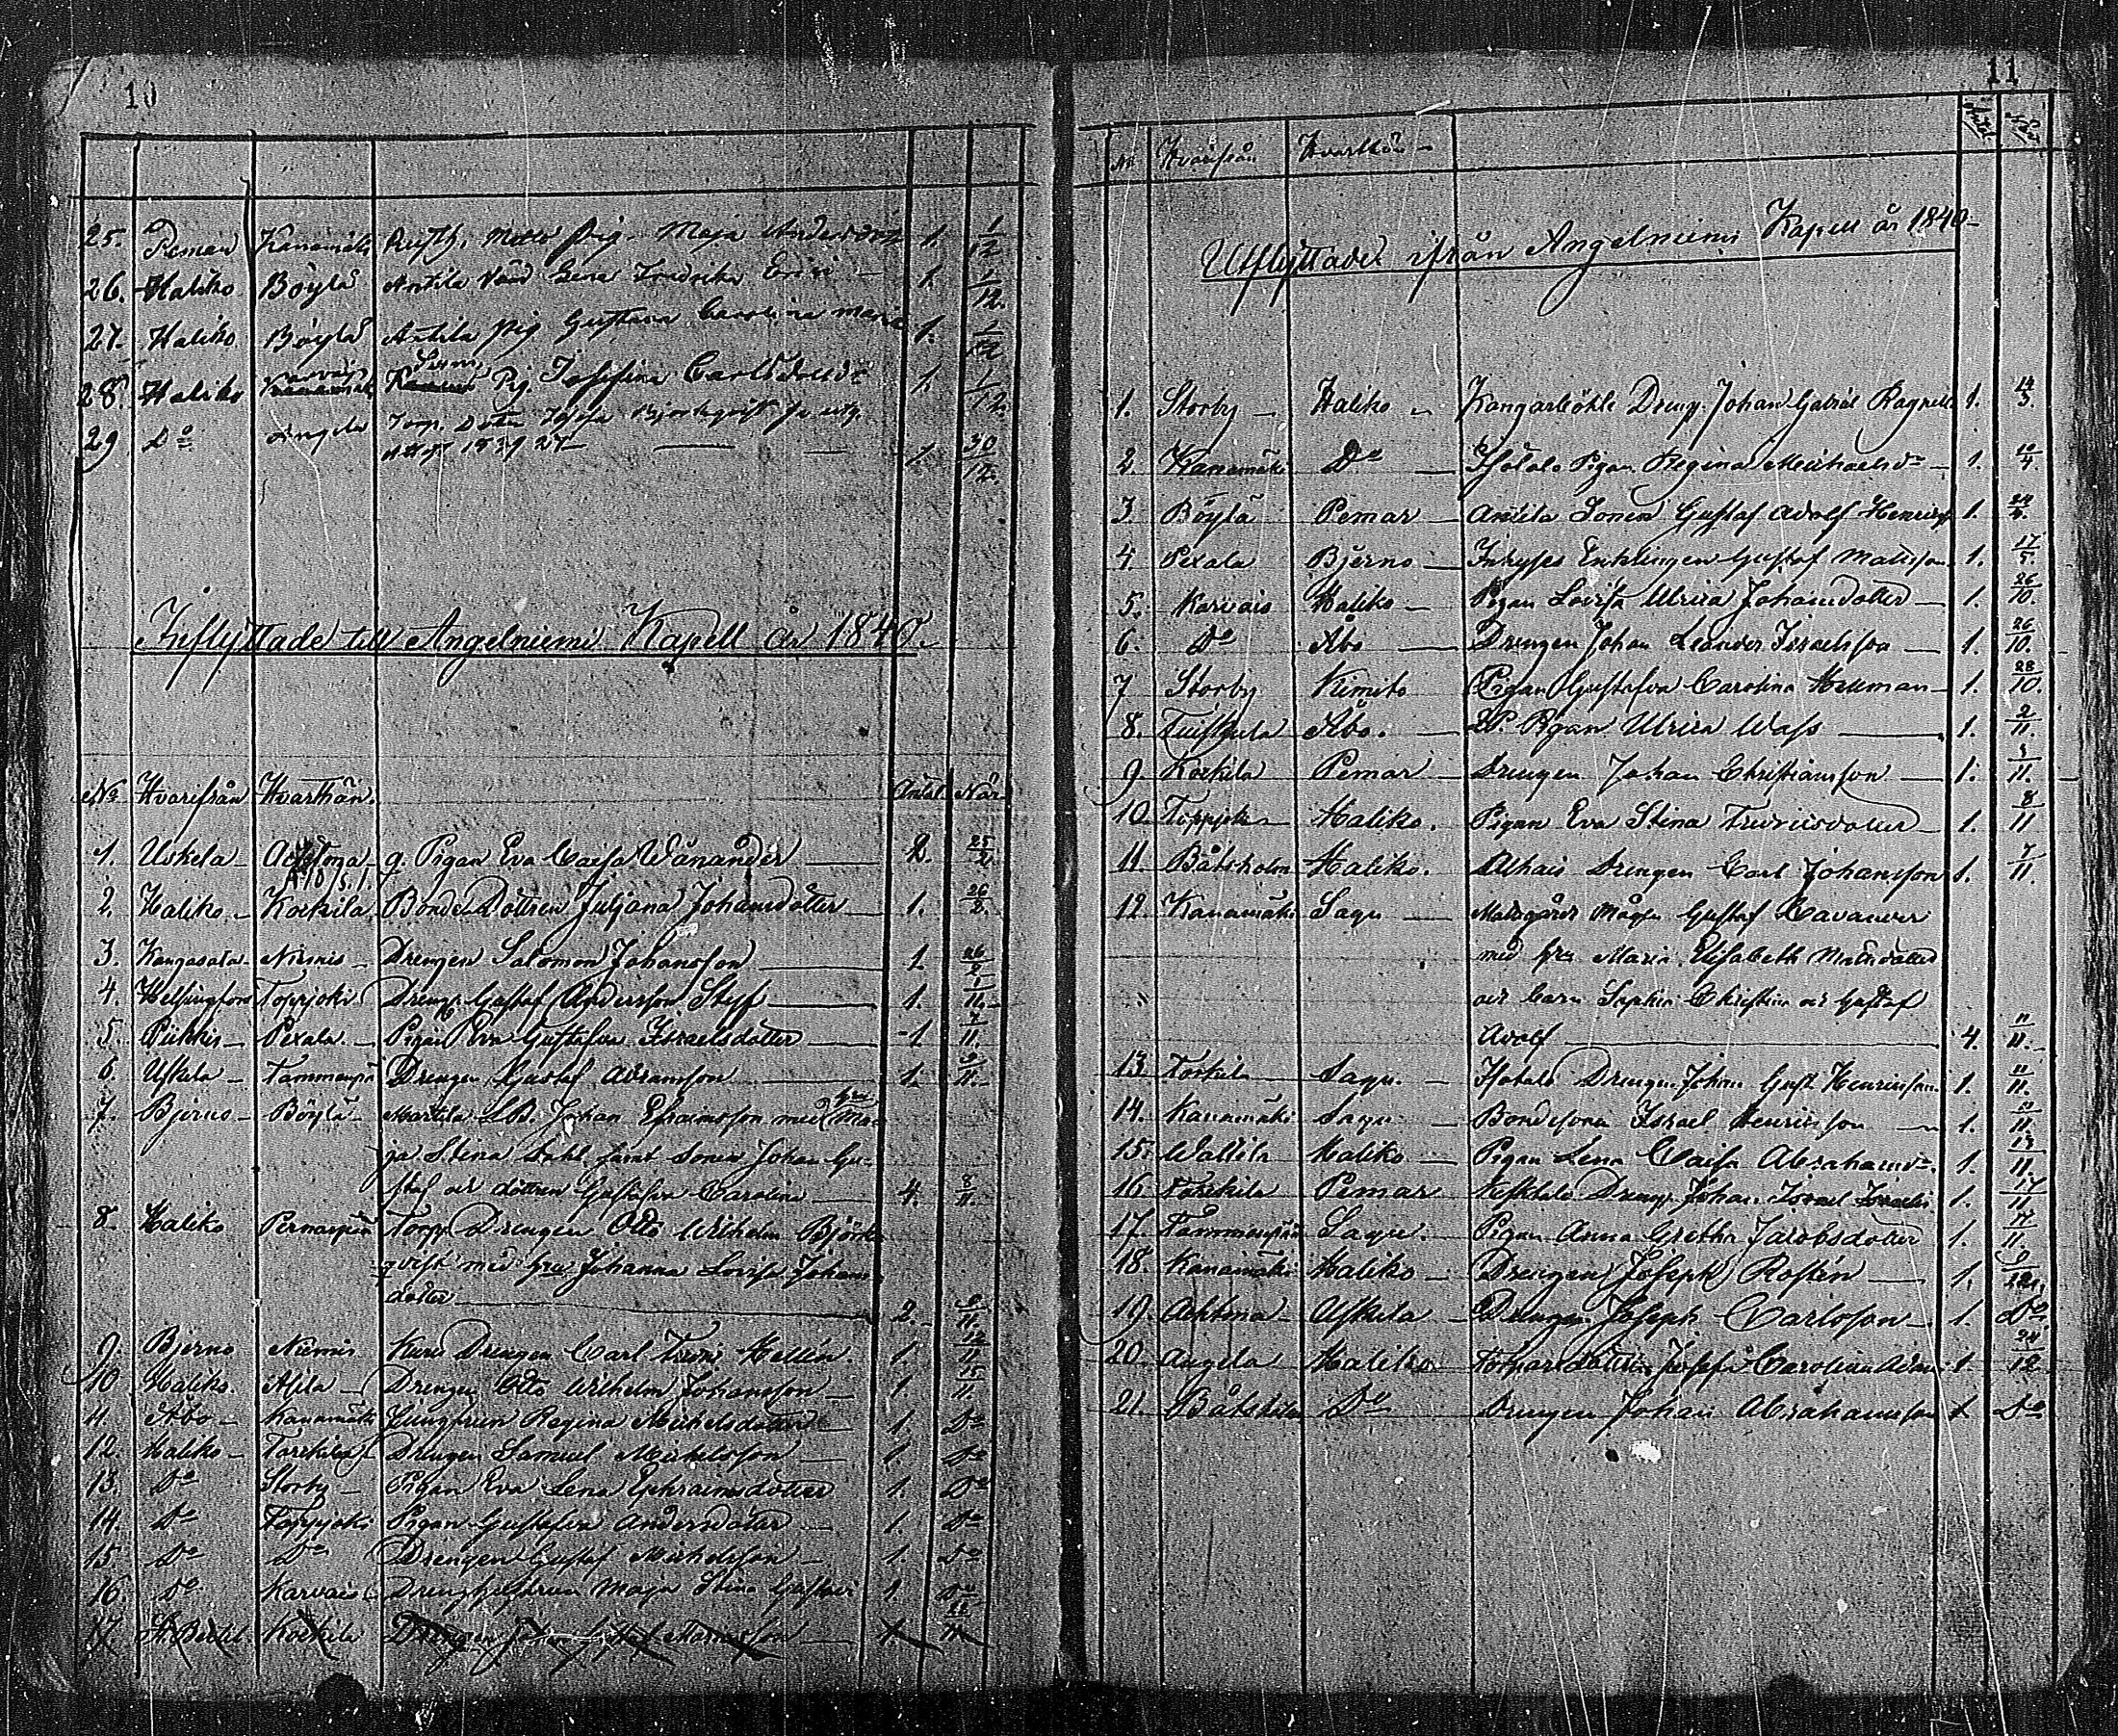 10
25. Pemar Kanamäki Rusth. Matts Pig. Maja Andersdotr 1. 1/12
26. Haliko Böylä Antila Lena Fredrika 1. 1/12.
27. Haliko Böylä Antila Pig. Gustava Carolina 1. 1/12
28. Haliko Karvais Pig. Josefina Carlsdotter 1. 1/12.
29 Do Angela Torp. Dotter Björkqvist
1839 1. 30/12.
Inflyttade till Angelniemi Kapell år 1840.
No Hvarifrån Hvarthän. Antal När
1. Uskela Achtina q. Pigan Eva Caisa Wänander 2. 25/2.
2. Haliko Kockila Bonde Dottren Juljana Johansdotter 1. 26/2.
3. Kangasala Niemis Drengen Salomon Johansson 1. 26/2
4. Helsingfors Toppjoki Dreng. Gustaf Andersson Styf 1. 1/11.
5. Piikkis Pexala Pigan Eva Gustafva Israelsdotter 1 7/11.
6. Uskela Tammenpä Drengen Gustaf Adamsson 1. 9/11.
7. Bjerno Böylä Martila Johan Efraimsson med hru Ma-
ja Stina Dahl samt Sonen Johan Gu-
staf och dottren Gustafva Carolina 4. 8/11.
8 Haliko Pernaspää Torp Drengen Otto Wilhelm Björk-
qvist med hru Johanna Lovisa Johans-
dotter 2.
9. Bjerno Niemis Drengen Carl Fredr. Hellén. 1. 12/11
10 Haliko. Asila Drengen Otto Wilhelm Johansson 1. 15/11.
11. Åbo Kanamäki Jungfrun Regina Michelsdotter 1. Do
12. Haliko Torrkila Drengen Samuel Michelsson 1. Do
13. Do Storby Pigan Eva Lena Ephraimsdotter 1. Do
14. Do Toppjoki Pigan Gustafva Andersdotter 1. Do
15. Do Do Drengen Gustaf Michelsson 1. Do
16. Do Karvais Drenghustrun Maja Stina 1. Do
17. St. Bertil Kockila Drengen
11
No Hvarifrån Hvarthän Antal När
Utflyttade ifrån Angelniemi Kapell år 1840
1. Storby Haliko Kangarböhle Dreng. Johan Gabriel 1. 14/3.
2. Kanamäki Do Isotalo Pigan Regina Michaelsdr 1. 10/4.
3 Böylä Pemar Antila Sonen Gustaf Adolf 1.
4. Pexala Bjerno Enklingen Gustaf Mattsson 1. 17/5.
5. Karvais Haliko Pigan Lovisa Ulrica Johansdotter 1. 26/10.
6. Do Åbo Drengen Johan Leander Israelsson 1. 26/10.
7 Storby Kimito Pigan Gustafva Carolina Hellman 1. 28/10.
8. Åbo. Pigan Ulrica Wass 1. 2/11.
9 Kockila Pemar Drengen Johan Christiansson 1.
10 Toppjoki Haliko. Pigan Eva Stina Fredricsdotter 1. 8/11
11. Båtsholm Haliko. Drengen Carl Johansson 1. 7/11.
12. Kanamäki Sagu Mågen Gustaf Cavander
med hru Maria Elisabeth Mattsdotter
och barn Sophia Christina och Gustaf
Adolf 4. 11/11.
13 Torkila Sagu. Isotalo Drengen Johan Gust. Henricsson 1. 11/11.
14. Kanamäki Sagu Bondesonen Israel Henricsson 1.
15. Wallila Haliko Pigan Lena Caisa Abrahamsdr. 1. 13/11.
16 Torrkila Pemar Keskitalo Dreng. Johan Israel 1. 17/11
17. Tammenpää Sagu. Pigan Anna Gretha Jacobsdotter 1.
18. Kanamäki Haliko Drengen Joseph Rosten 1.
19. Achtina Uskela Drengen Joseph Carlsson 1. Do
20. Angela Haliko Josefa Carolina 1 24/12
21. Do Drengen Johan Abrahamsson 1 Do